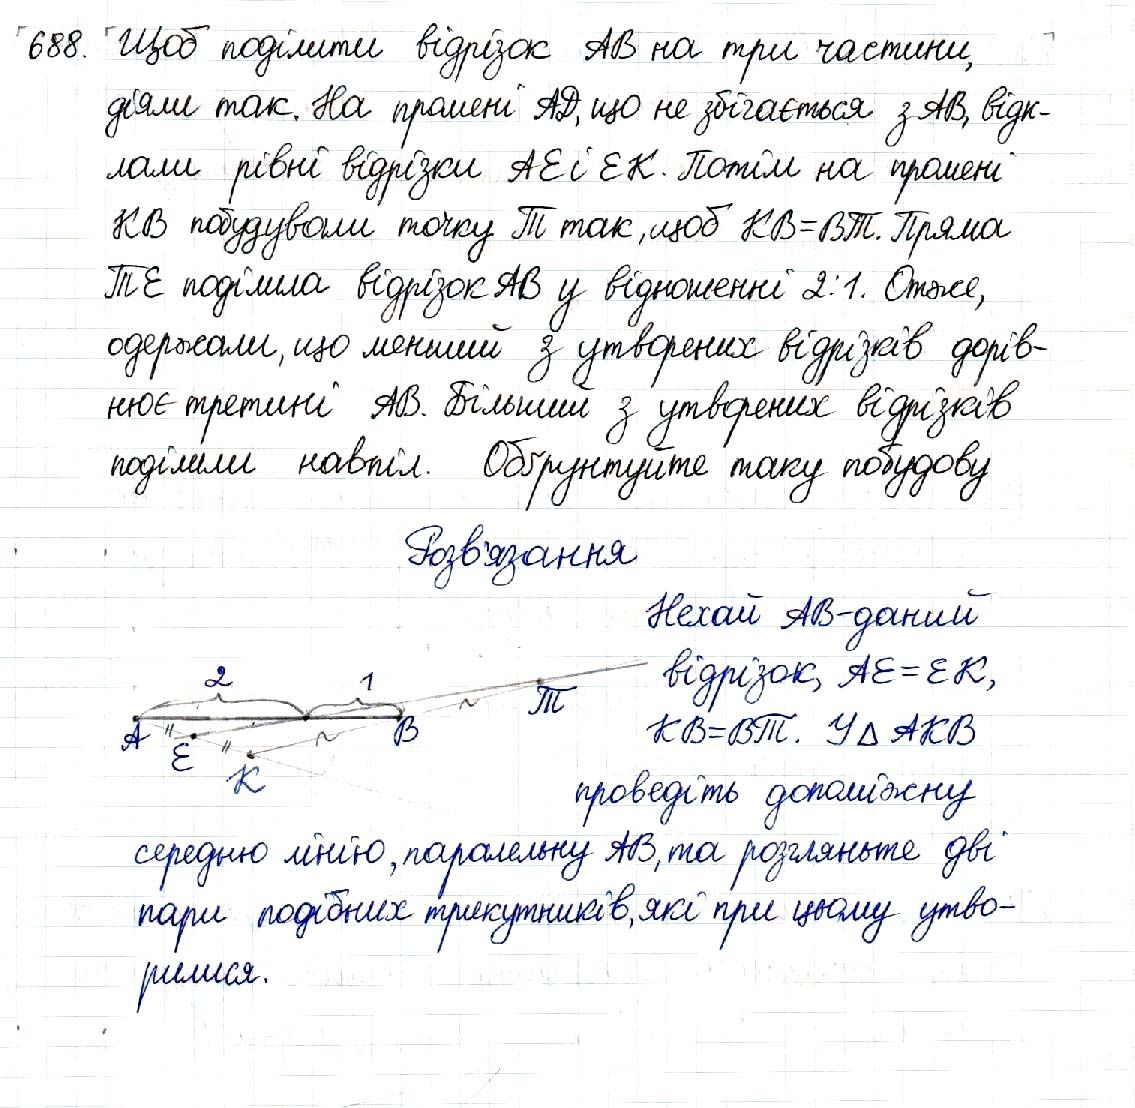 688. Щоб поділити відрізок АВ на три частини,
діяли так. На промені АД, що не збігається з АВ, відк-
лали рівні відрізки АЕ і ЕК. Потім на промені
КВ побудували точку Т так, щоб КВ=ВТ. Пряма
ТЕ поділила відрізок АВ у відношенні 2:1. Отже,
одержали, що менший з утворених відрізків дорів-
нює третині АВ. Більший з утворених відрізків
поділили навпіл. Обґрунтуйте таку побудову
Розв'язання
Нехай АВ-даний
відрізок, АЕ=ЕК,
КВ=ВТ. У△ АКВ
проведіть допоміжну
середню лінію, паралельну АВ, та розгляньте дві
пари подібних трикутників, які при цьому утво-
рилися.
2 1
Т
А В
Е
К